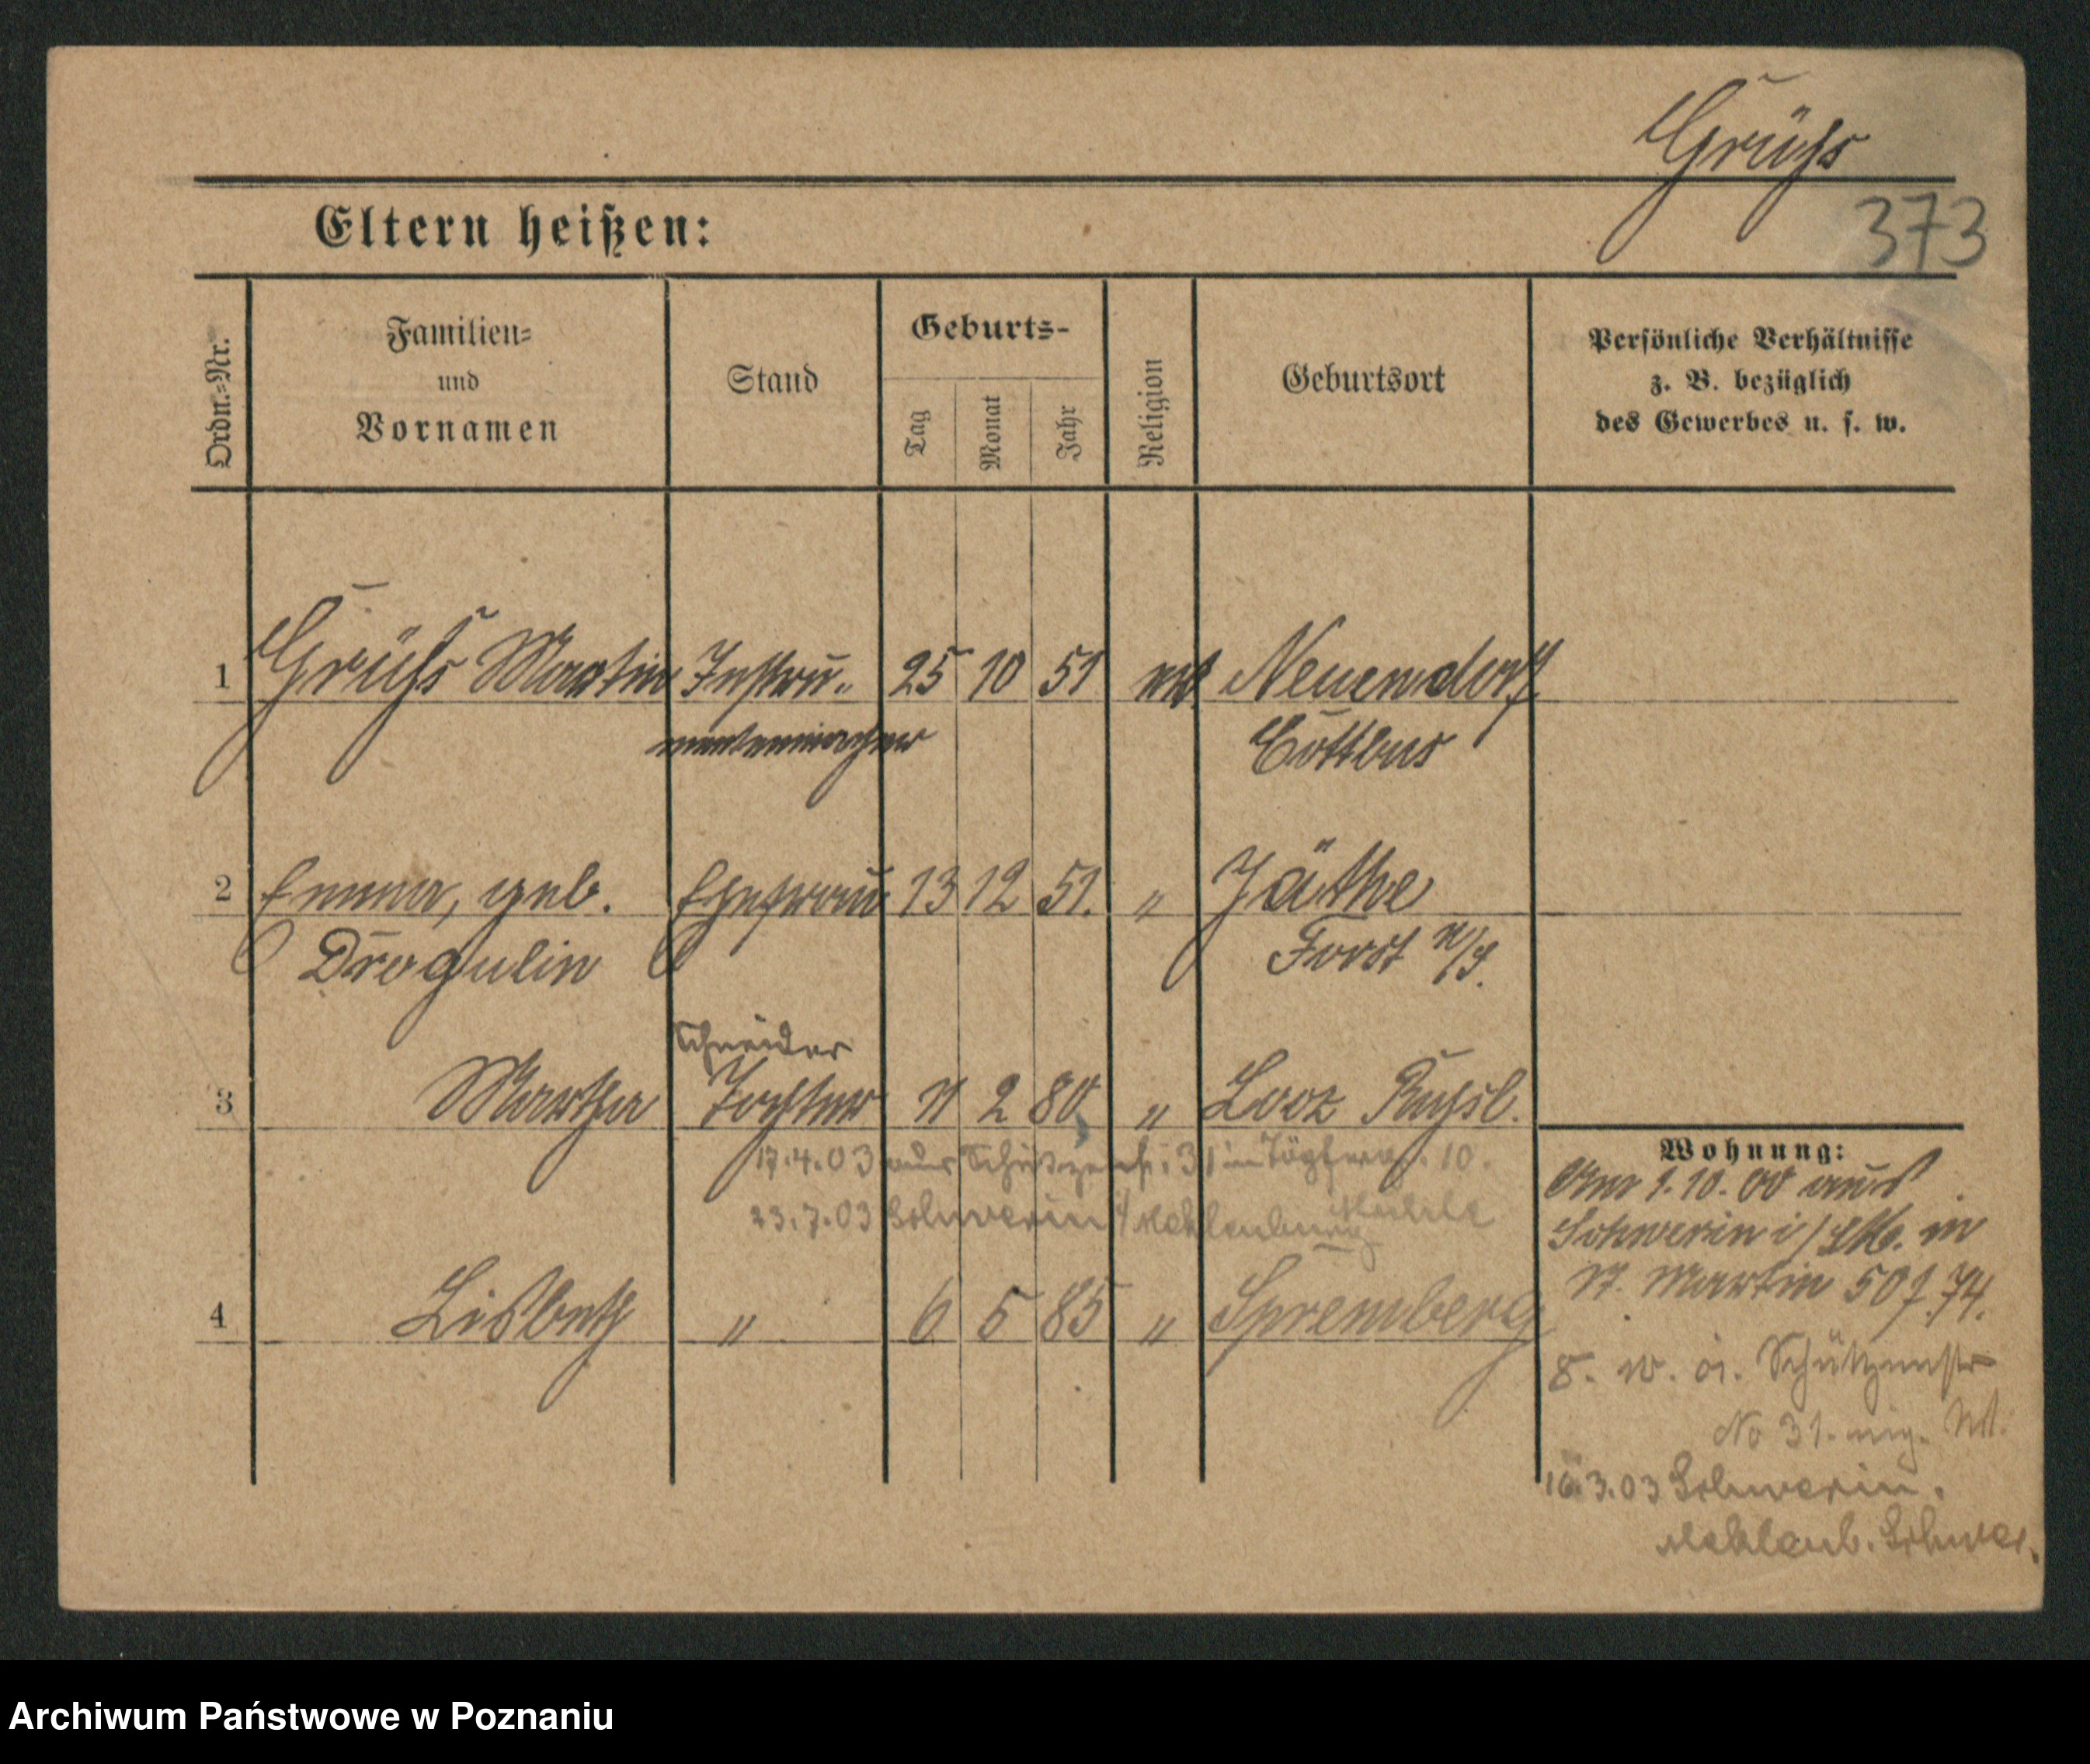 Grühs
373
Eltern heißen:
Ordn.=Nr.
Familien=
und
Vornamen
Stand
Geburts-
Tag
Monat
Jahr
Religion
Geburtsort
Persönliche Verhältnisse
z. B. bezüglich
des Gewerbes u. s. w.
1 Grühs Martin Instru- 25 10 51 Neuendorf
mentenmacher Cottbus
2 Emma, geb. Ehefrau 13 12 51. " Jäthe
Drogulin Forst n/L.
Schneider
3 Martha Tochter 11 2 80 " Looz
17.4.03 aus 31 in 10.
23.7.03 Schwerin i/Mecklenburg
4 Lisbeth " 6 5 85 " Spremberg
Wohnung:
Am 1.10.00 aus
Schwerin i/M. in
St. Martin 50 74.
8. 10. 01. Schützenstr
No 31.
16.3.03 Schwerin.
Mecklenb. Schwer.
Archiwum Państwowe w Poznaniu